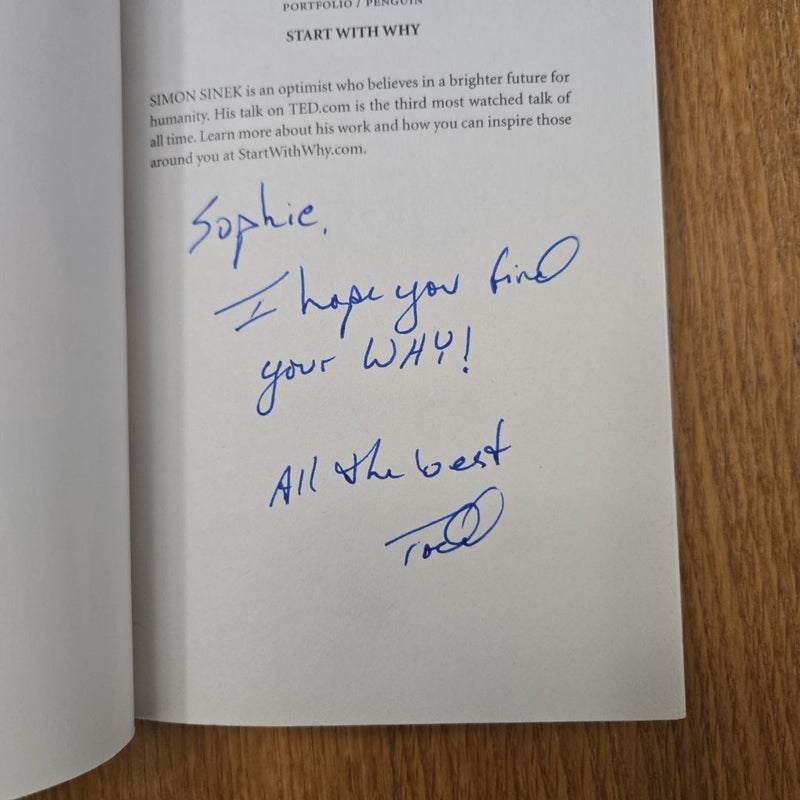 PORTFOLIO / PENGUIN
START WITH WHY
SIMON SINEK is an optimist who believes in a brighter future for
humanity. His talk on TED.com is the third most watched talk of
all time. Learn more about his work and how you can inspire those
around you at StartWithWhy.com.
Sophie,
I hope you find
your WHY!
All the best
Todd